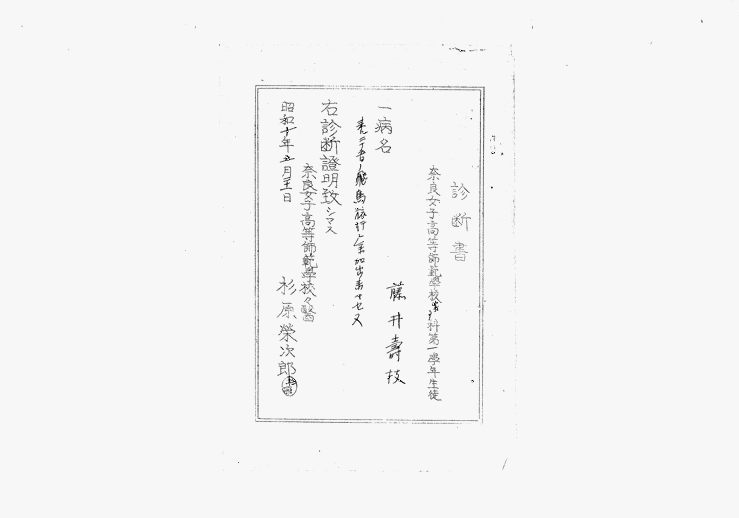 診断書
奈良女子高等師範學校 科第一學年生徒
藤井壽技
一病名
飛鳥旅行 參加出来マセヌ
右診断證明致シマス
昭和十年五月 日
奈良女子高等師範學校々醫
杉原榮次郎